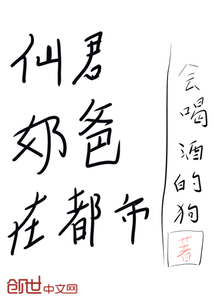 仙君
奶爸
在都市
会喝酒的狗
著
创世中文网